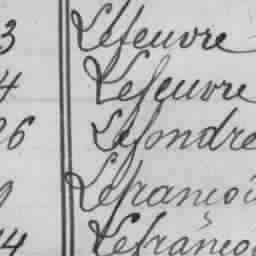 3 Lefeuvre
4 Lefeuvre
26 Lefondre
Lefrançoi
14 Lefrançoi